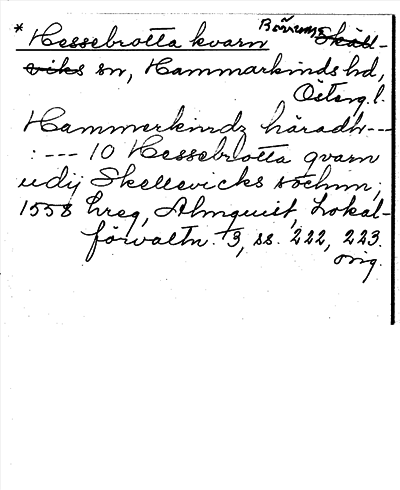 * Hessebrotta kvarn Börrums Skäll-
viks sn, Hammarkinds hd,
Österg. l.
Hammerkindz häradh---
: --- 10 Hessebrotta qvarn
udij Skellevicks sochnn;
1558 hreg, Almquist, Lokal-
förvaltn. 3, ss. 222, 223.
orig.